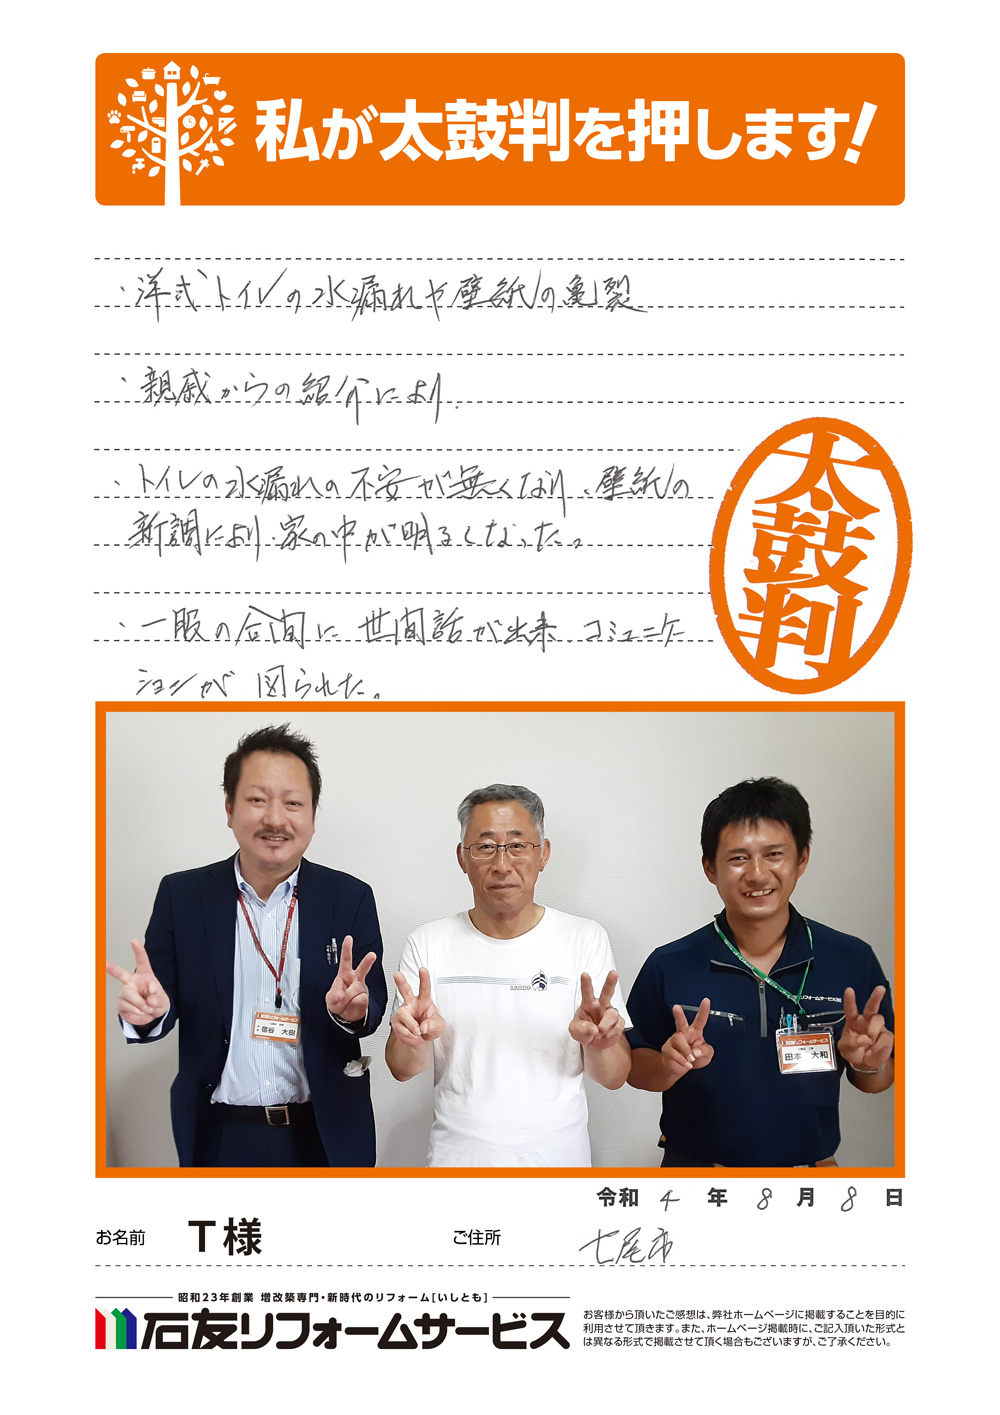 私が太鼓判を押します!
・洋式トイレの水漏れや壁紙の亀裂
・親戚からの紹介により.
・トイレの水漏れの不安が無くなり、壁紙の
新調により、家の中が明るくなった。
・一服の合間に世間話が出来、コミュニケー
ションが図られた。
太鼓判
宿谷 大樹
石友リフォームサービス
田本 大和
令和 4 年 8 月 8 日
お名前 T様 ご住所 七尾市
昭和23年創業 増改築専門・新時代のリフォーム[いしとも]
石友リフォームサービス
お客様から頂いたご感想は、弊社ホームページに掲載することを目的に
利用させて頂きます。また、ホームページ掲載時に、ご記入頂いた形式と
は異なる形式で掲載させて頂く場合もございますが、ご了承ください。